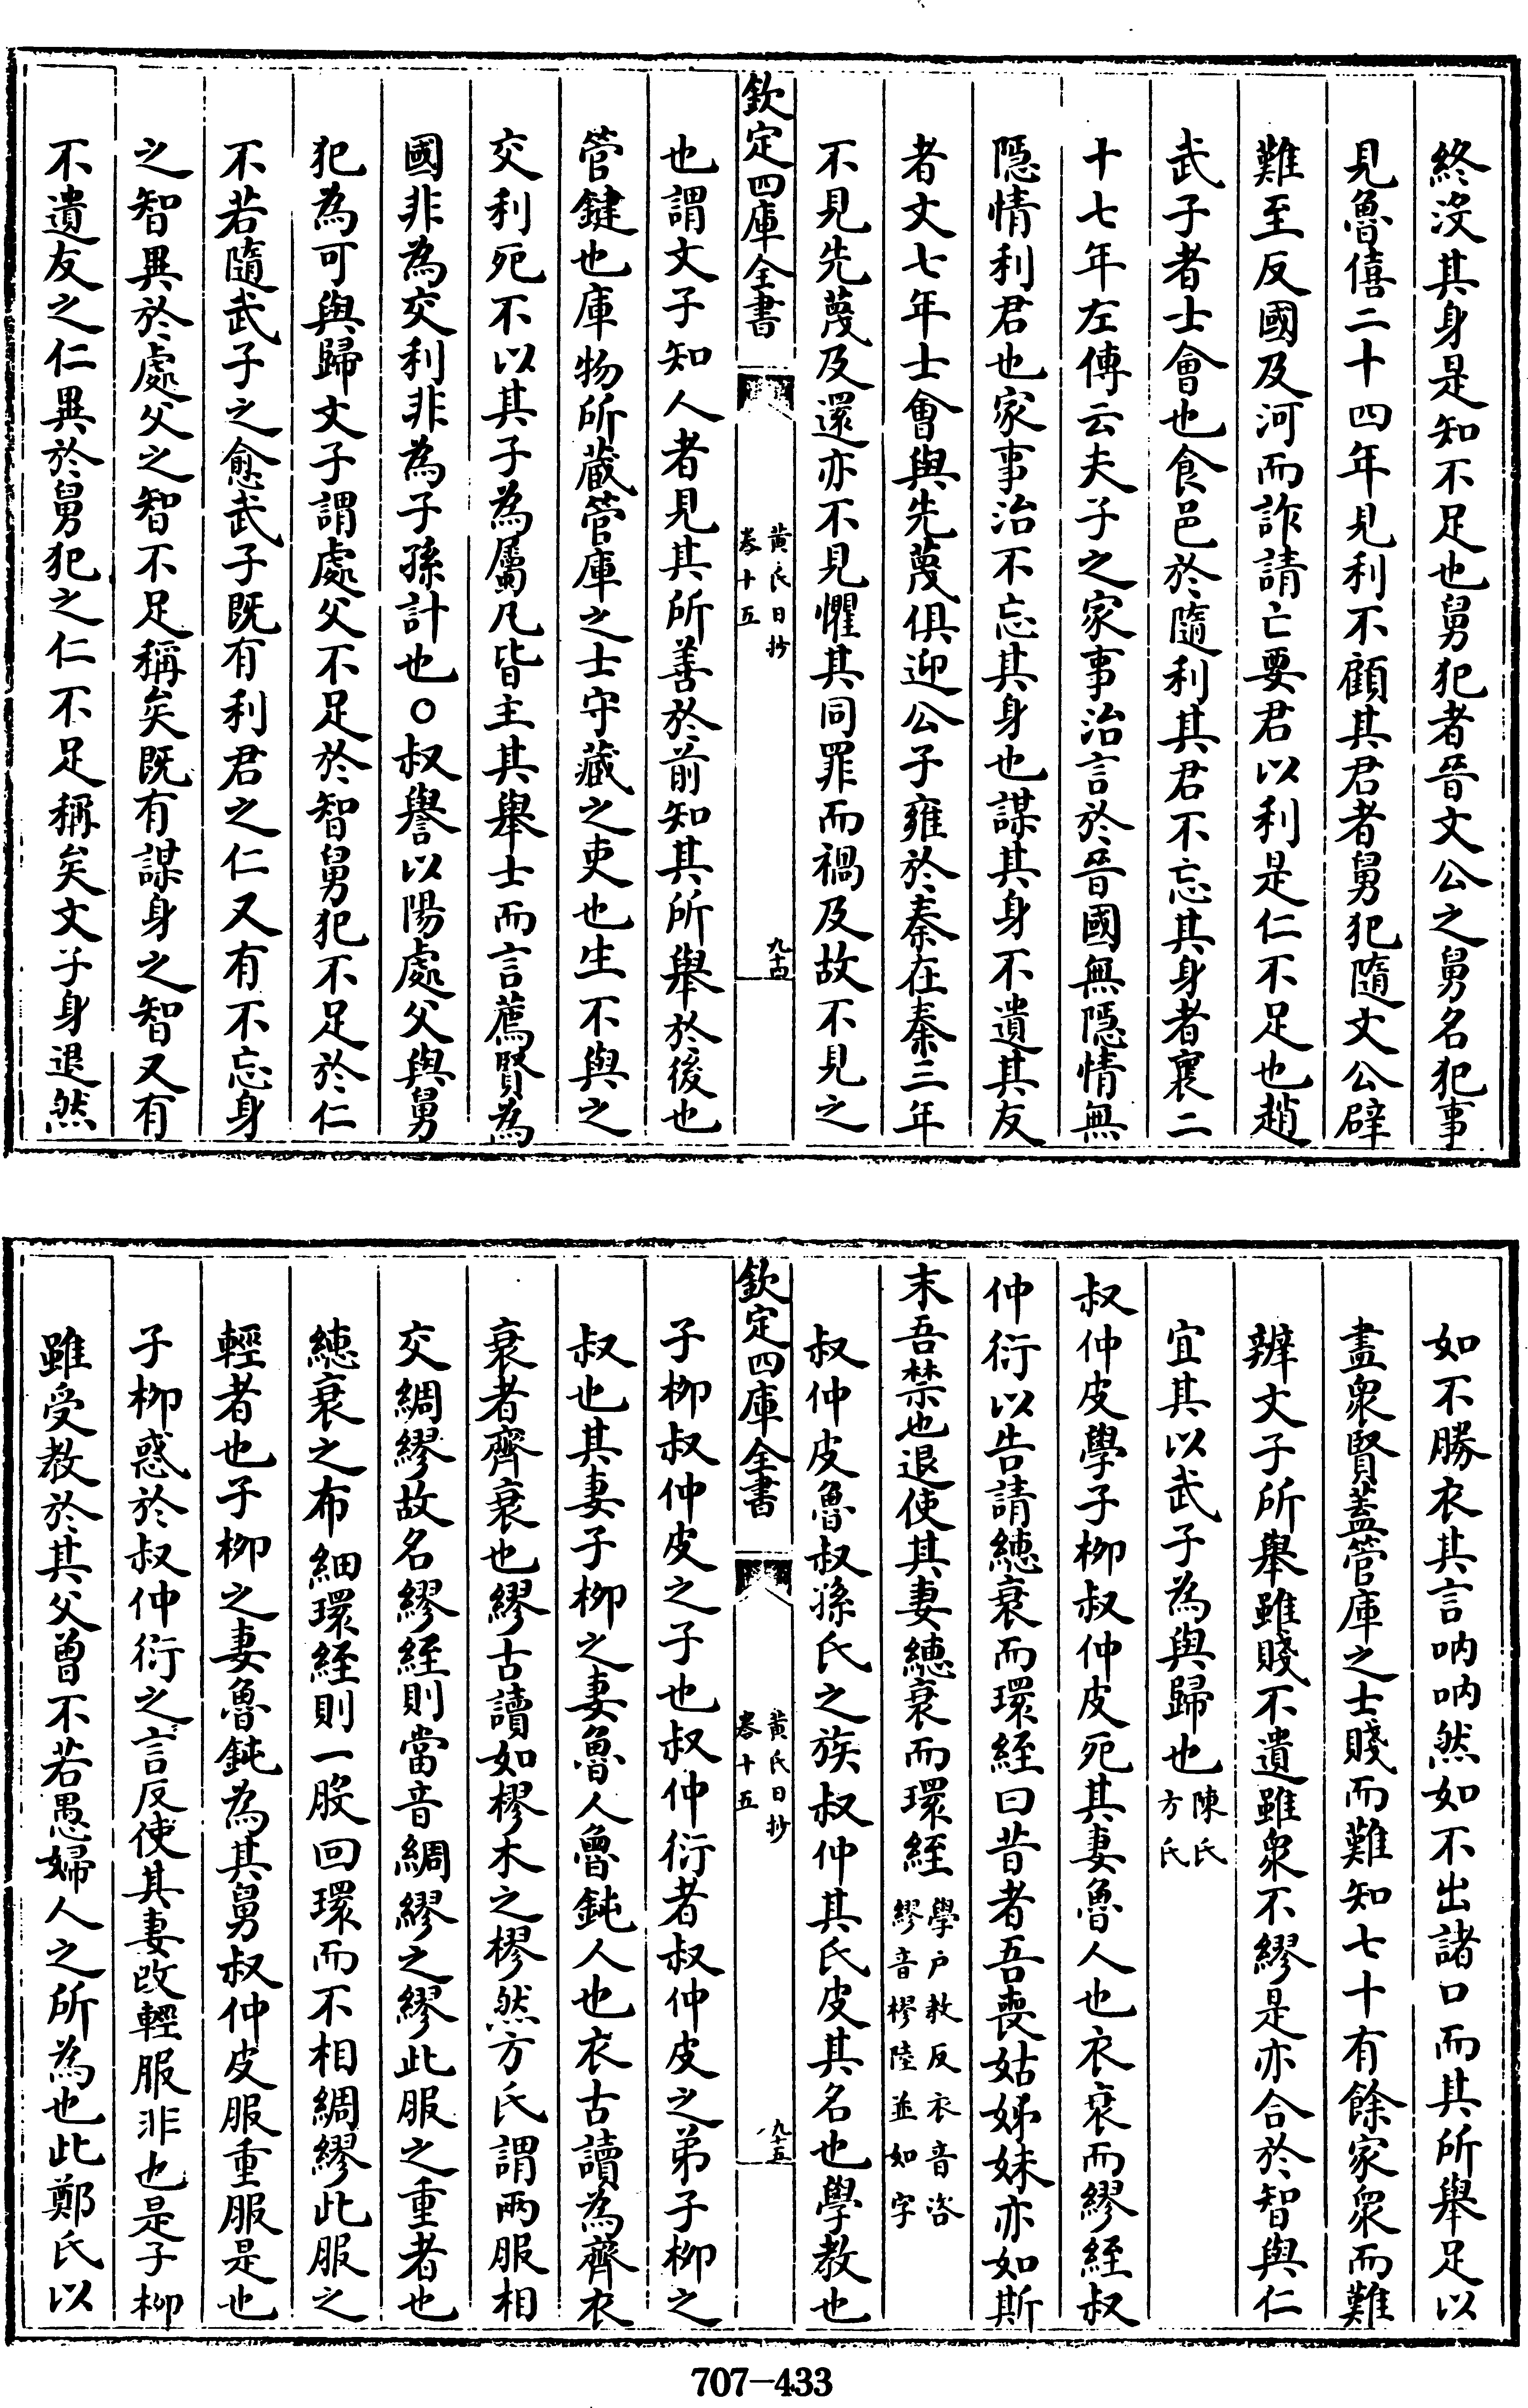 終沒其身是知不足也舅犯者晉文公之舅名犯事
見魯僖二十四年見利不顧其君者舅犯隨文公辟
難至反國及河而詐請亡要君以利是仁不足也趙
武子者士會也食邑於隨利其君不忘其身者襄二
十七年左傳云夫子之家事治言於晉國無隱情無
隱情利君也家事治不忘其身也謀其身不遺其友
者文七年士會與先蔑俱迎公子雍於秦在秦三年
不見先蔑及還亦不見懼其同罪而禍及故不見之
欽定四庫全書
黃氏日抄
卷十五
九十四
也謂文子知人者見其所善於前知其所舉於後也
管鍵也庫物所藏管庫之士守藏之吏也生不與之
交利死不以其子為屬凡皆主其舉士而言薦賢為
國非為交利非為子孫計也○叔譽以陽處父與舅
犯為可與歸文子謂處父不足於智舅犯不足於仁
不若隨武子之愈武子既有利君之仁又有不忘身
之智異於處父之智不足稱矣既有謀身之智又有
不遺友之仁異於舅犯之仁不足稱矣文子身退然
如不勝衣其言吶吶然如不出諸口而其所舉足以
盡衆賢蓋管庫之士賤而難知七十有餘家衆而難
辨文子所舉雖賤不遺雖衆不繆是亦合於智與仁
宜其以武子為與歸也陳氏
方氏
叔仲皮學子柳叔仲皮死其妻魯人也衣衰而繆絰叔
仲衍以告請繐衰而環絰曰昔者吾喪姑姊妹亦如斯
末吾禁也退使其妻繐衰而環絰學戶教反衣音咨
繆音樛陸並如字
叔仲皮魯叔孫氏之族叔仲其氏皮其名也學教也
欽定四庫全書
黃氏日抄
卷十五
九十五
子柳叔仲皮之子也叔仲衍者叔仲皮之弟子柳之
叔也其妻子柳之妻魯人魯鈍人也衣古讀為齊衣
衰者齊衰也繆古讀如樛木之樛然方氏謂兩服相
交綢繆故名繆絰則當音綢繆之繆此服之重者也
繐衰之布細環絰則一股回環而不相綢繆此服之
輕者也子柳之妻魯鈍為其舅叔仲皮服重服是也
子柳惑於叔仲衍之言反使其妻改輕服非也是子柳
雖受教於其父曾不若愚婦人之所為也此鄭氏以
707-433